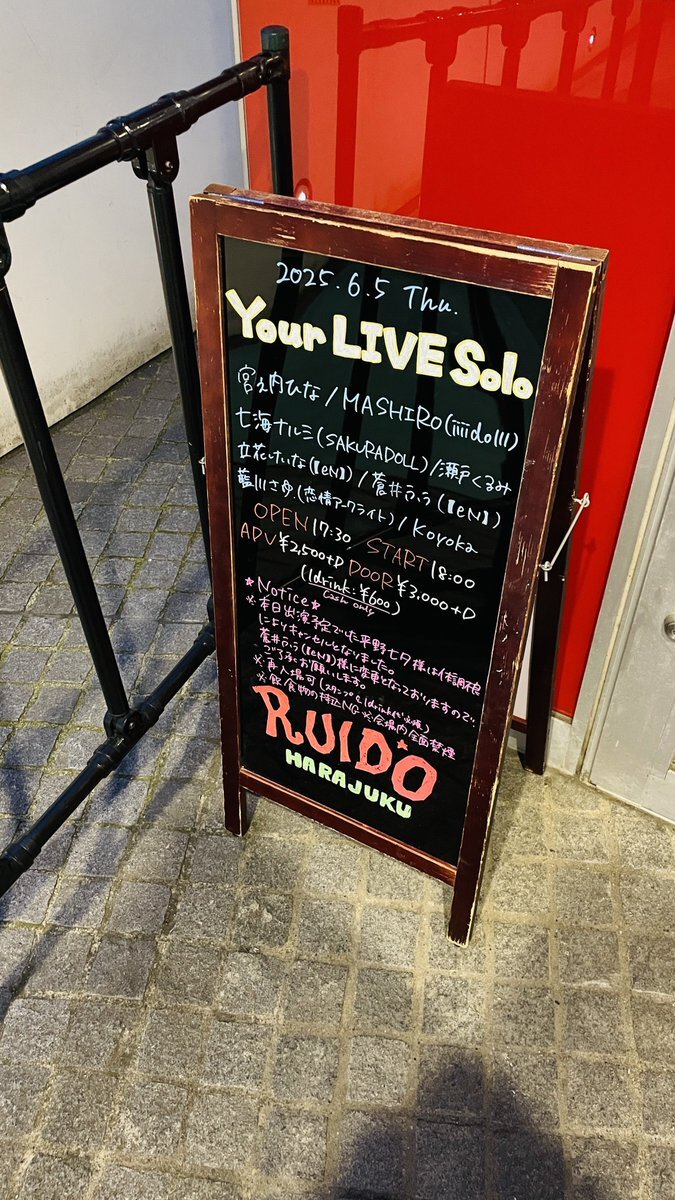 2025.6.5 Thu.
Your LIVE Solo
宮之内ひな/MASHIRO(iiiidolll)
七海ナルミ(SAKURADOLL)/瀬戸くるみ
立花けいな(【eN】)/蒼井ふう(【eN】)
藍川さゆ(恋情アークライト)/Koyoka
OPEN 17:30/START 18:00
ADV ¥2,500+D DOOR ¥3,000+D
(1drink:¥600)
cash only
★Notice★
※本日出演予定でした平野七夕様は体調不良
によりキャンセルとなりました。
蒼井ふう(【eN】)様に変更となっておりますので、
ご了承お願いします。
※再入場可(スタンプと1drink代必要)
※飲食物の持込NG ※会場内全面禁煙
RUIDO
HARAJUKU